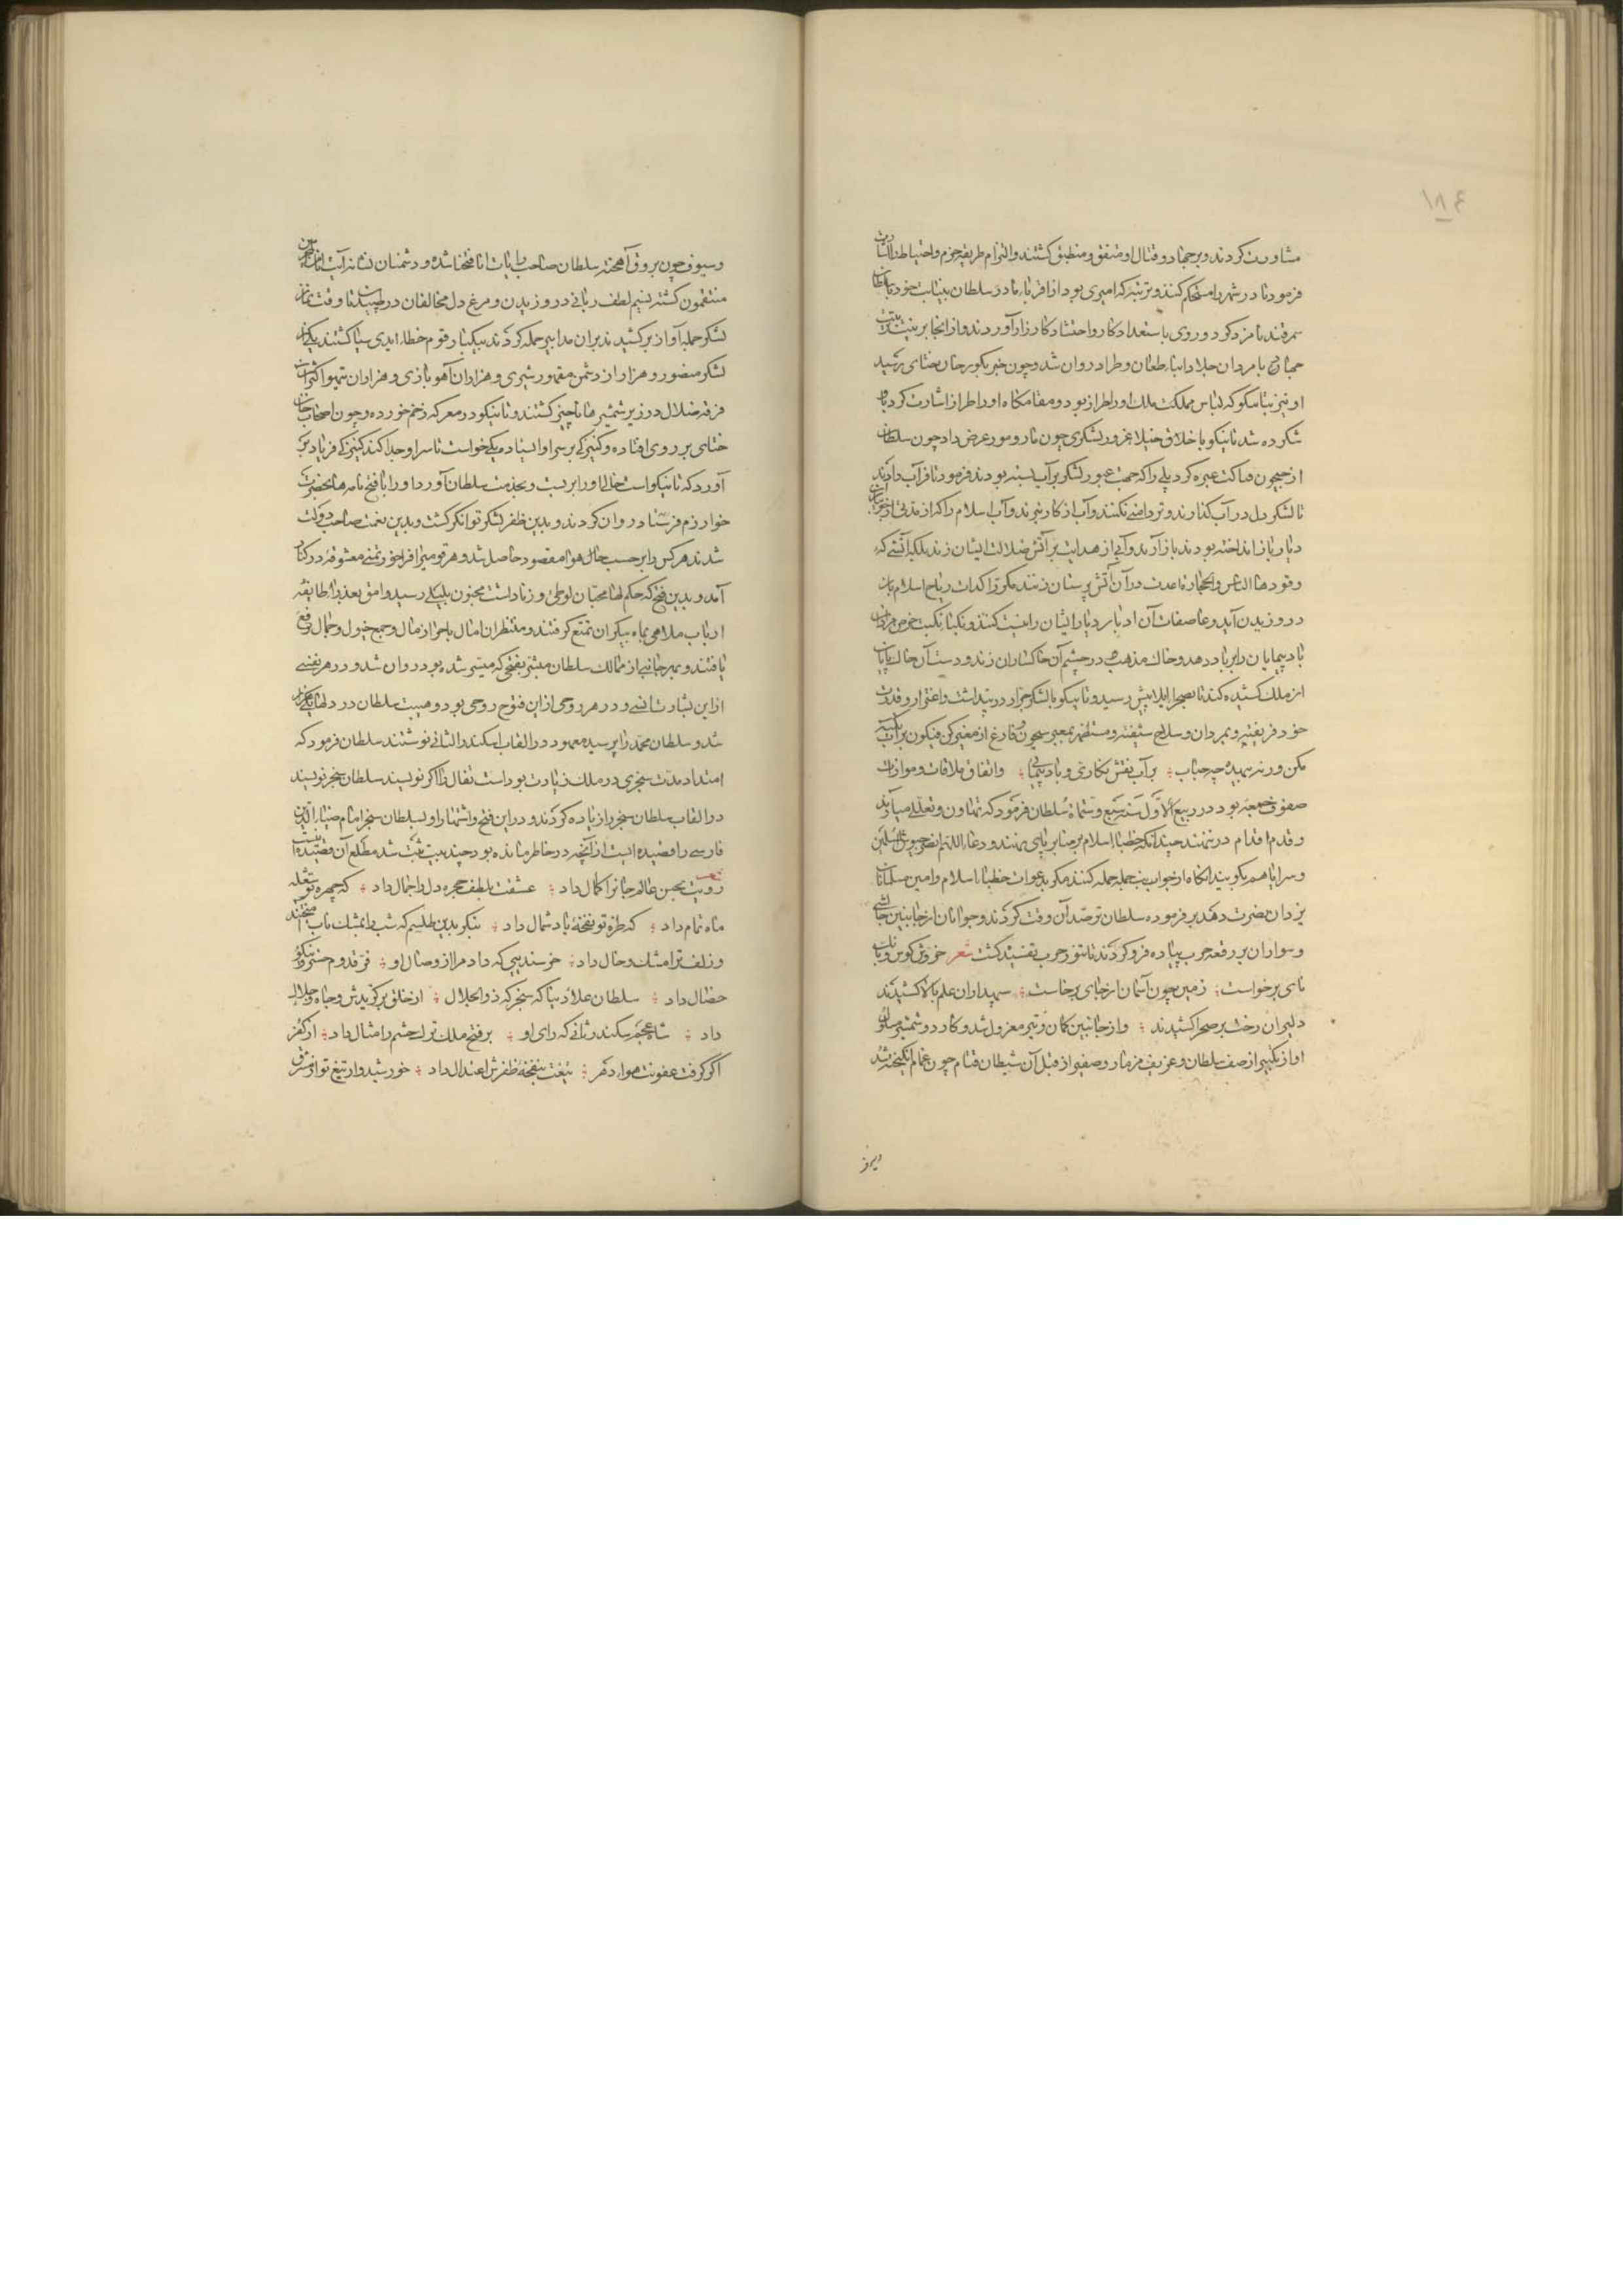 ۱۸۶
مشاورت کردند و بر جهاد و قتال او متفق و منطبق گشتند و التزام طریقه حزم و احتیاط را
فرمود تا در شهر را مستحکم کنند و ترتیه که امیری بود از اقرباء مادر سلطان بنیابت خود
سمرقند نامزد کرد و روی باستعداد کار و احتشاد کارزار آوردند و از انجا بر نیت
جهاد با مردان جلاد ابناء طعان و طراد روان شد و چون خبر بکورخان ختای رسید
او نیز بتاینکو که لباس مملکت ملک او را طراز بود و مقامگاه او را طراز اشارت کرد تا
شکرده شد تاینکو با خلاق خیلا غرور لشکری چون مار و مور عرض داد چون سلطان
از جیحون فناکت عبره کرد پلی را که جهت عبور لشکر بر آب بسته بودند فرمود تا فرا آب دادند
تا لشکر دل در آب کنارند و تر دامنی نکنند و آب از کار نبرند و آب اسلام را که از مدتی
دیار باز انداخته بودند باز آرند و آبی از هدایت بر آتش ضلالت ایشان زنند بلک آتشی که
وقودها الناس والحجارة اعدت در آن آتش پرستان زنند مگر راکدات ریاح اسلام باز
در وزیدن آید و عاصفات آن ادبار بر دیار ایشان را نیست کنند و نکبا نکبت خرمن مراد
باد پیمایان را بر باد دهد و خاک مذهب در چشم آن خاکساران زند و دست آن خاک
از ملک کشیده کند تا بصحراء ایلامیش رسید و تاینکو با لشکر جرار در تیه داشت و اغترار و قدرت
خود فریفته و بمردان و سلاح شیفته و مستظهر بمعبر سیحون و فارغ از مغیر کن فیکون بر آب تکیه
مکن ورنه بیهده چو حباب ؛ بر آب نقش نگاری و باد پیمائی ؛ واتفاق ملاقات و موازات
صفوف جمعه بود در ربیع الاول سنه سبع و ستماة سلطان فرمود که تهاون و تعللی میآید
و قدم اقدام در ننهند چندانکه خطباء اسلام بر منابر پای نهند و دعاء اللهم انصر جیوش المسلمین
و سرایاهم بگویند آنگاه از جوانب جمله حمله کنند مگر بدعوات خطباء اسلام و آمین مسلمانان
یزدان نصرت دهد بر فرموده سلطان ترصد آن وقت کردند و جوانان از جانبین
و سواران بر رقعه حرب پیاده فرو کردند تا تنور حرب تفسیده گشت شعر خروش کوس و بانگ
نای برخواست ؛ زمین چون آسمان از جای برخاست ؛ سپهداران علم بالا کشیدند
دلیران رخت بر صحرا کشیدند ؛ و از جانبین کمان و تیر معزول شد و کارد و شمشیر مسلول
آواز تکبیر از صف سلطان و عزیف مزمار و صفیر از قبل آن شیطان قتام چون غمام انگیخته شد
و سیوف چون بروق آهخته سلطان صاحب رایات انا فتحنا شده و دشمنان نشانه آیت انا من المجرمین
منتقمون گشته نسیم لطف ربانی در وزیدن و مرغ دل مخالفان در طپیدن تا وقت نماز
لشکر جمله آواز برکشیدند بران مدابیر حمله کردند بیکبار قوم خطا ایدی سبا گشتند
لشکر منصور و هزار از دشمن مقهور شیری و هزاران آهو بازی و هزاران تیهو اکثر
فرقه ضلال در زیر شمشیرها ناچیز گشتند و تاینکو در معرکه زخم خورده و چون اصحاب خان
ختای بر روی افتاده و کنیزکی بر سر او ایستاده یکی خواست تا سر او جدا کند کنیزک فریاد بر
آورد که تاینکو است حالی او را بر بست و بخدمت سلطان آورد او را با فتح نامه ها بحضرت
خوارزم فرستاد روان کردند و بدین ظفر لشکر توانگر گشت و بدین نعمت صاحب دولت
شدند هر کس را بر حسب حال هوا مقصود حاصل شد و هر قوم را فراخور تمنی معشوقه در کنار
آمد و بدین فتح که حکم لها محبان لوطی و زنا داشت مجنون بلیلی رسید و وامق بعذرا طایفه
ارباب ملاهی بماه پیکران تمتع گرفتند و منتظران امثال باحراز مال و جمع خیول و جمال
یافتند و بهر جانبی از ممالک سلطان مبشر بفتحی که میسر شده بود روان شد و در هر نفسی
ازاین بشارت انسی و در هر روحی ازاین فتوح روحی بود و هیبت سلطان در دلها یکی
شد و سلطان محمد را بر سبیل معهود در القاب اسکندر الثانی نوشتند سلطان فرمود که
امتداد مدت سنجری در ملک زیادت بودست تفال را اگر نویسند سلطان سنجر نویسند
در القاب سلطان سنجر را زیاده کردند و در این فتح و اشتهار او بسلطان سنجر امام ضیاء الدین
فارسی را قصیده ایست از آنچه در خاطر مانده بود چند بیت ثبت شد مطلع آن قصیده
رویت بحسن عالم جانرا کمال داد ؛ عشقت بلطف حجره دل را جمال داد ؛ که چهره تو
ماه تمام داد ؛ که طره تو نفخه باد شمال داد ؛ بنگر بدین طلسم که شب را بمشک ناب
و زلف ترا مشک و خال داد ؛ خرسندیی که داد مرا از وصال او ؛ فرقدوم خسرو نیکو
خصال داد ؛ سلطان علاء دنیا که سنجر که ذو الجلال ؛ از خلق برگزیدش و جاه و جلال
داد ؛ شاه عجم سکندر ثانی که رای او ؛ بر فتح ملک ترک حشم را مثال داد ؛ از کفر
اگر گرفت عفونت هواء دهر ؛ تیغت بنفخه ظفرش اعتدال داد ؛ خورشیدوار تیغ تو از مشرق